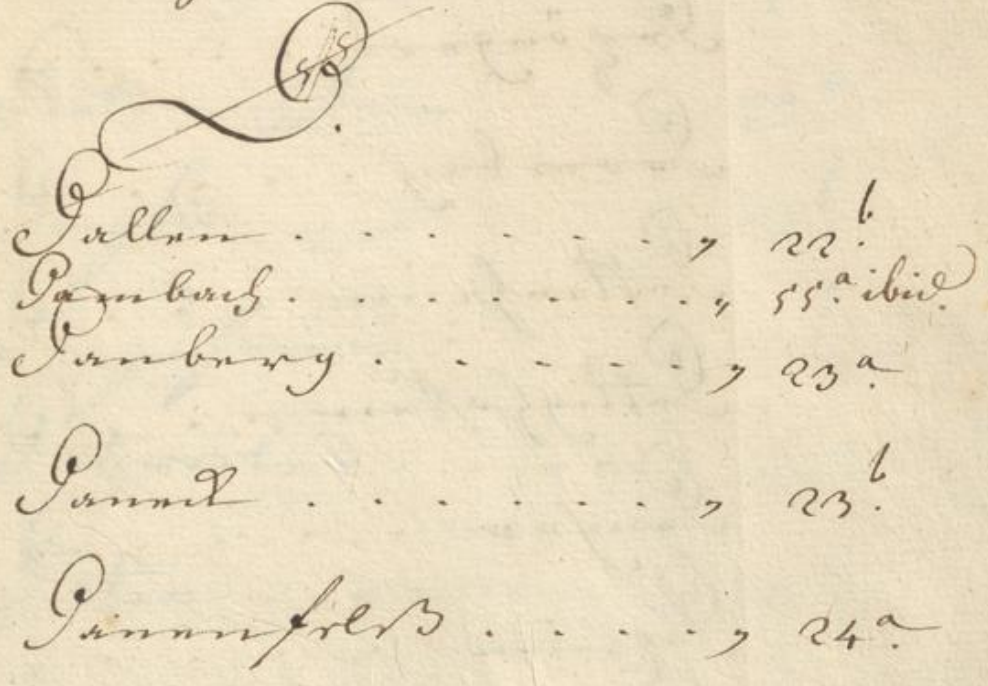 T.
Tallen . . . . . . . „ 22b.
Tambach . . . . . . . „ 55a. ibid.
Tanberg . . . . . „ 23a.
Taneck . . . . . . „ 23b.
Tanenfelß . . . . „ 24a.